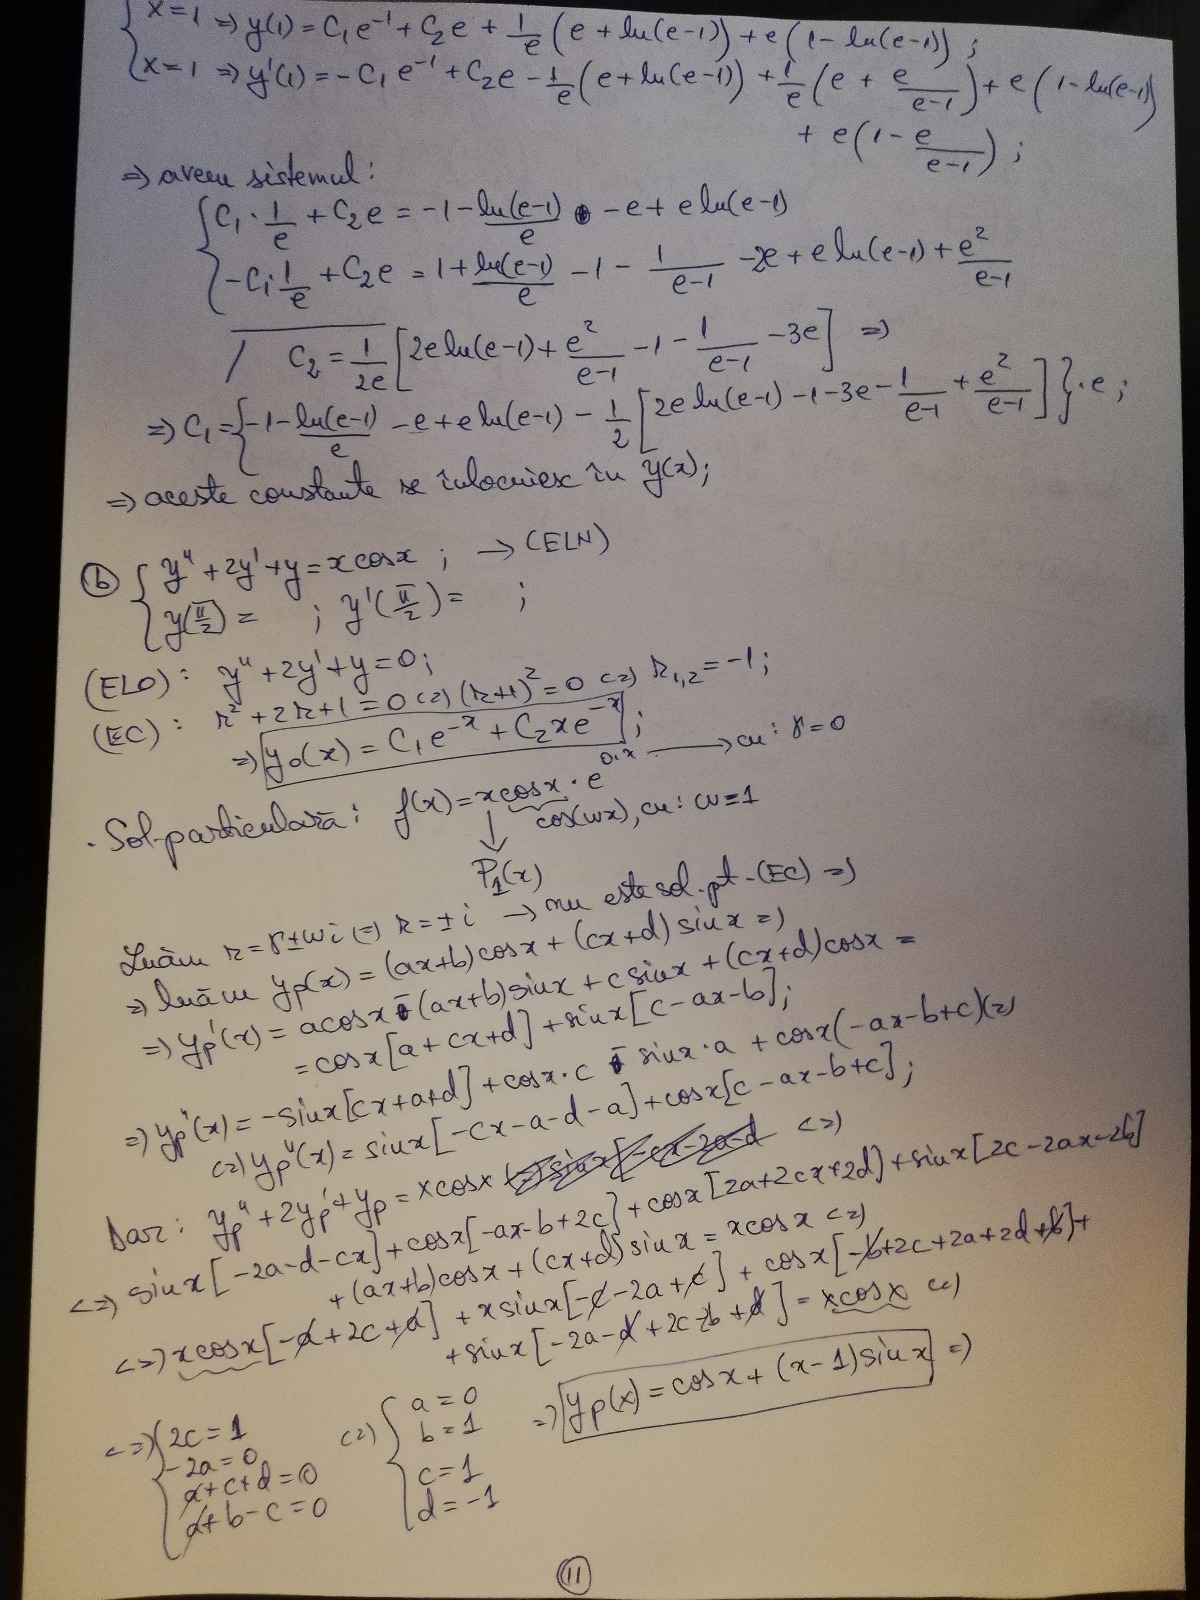 x=1 => y(1) = C₁e⁻¹ + C₂e + 1/e (e + ln(e-1)) + e(1 - ln(e-1)) ;
x=1 => y'(1) = -C₁e⁻¹ + C₂e - 1/e (e + ln(e-1)) + 1/e (e + e/(e-1)) + e(1 - ln(e-1))
+ e(1 - e/(e-1)) ;
=> avem sistemul:
C₁·1/e + C₂e = -1 - ln(e-1)/e - e + e ln(e-1)
-C₁·1/e + C₂e = 1 + ln(e-1)/e - 1 - 1/(e-1) - 2e + e ln(e-1) + e²/(e-1)
/ C₂ = 1/2e [2e ln(e-1) + e²/(e-1) - 1 - 1/(e-1) - 3e] =>
=> C₁ = {-1 - ln(e-1)/e - e + e ln(e-1) - 1/2 [2e ln(e-1) - 1 - 3e - 1/(e-1) + e²/(e-1)]}·e ;
=> aceste constante se înlocuiesc în y(x);
(b) { y'' + 2y' + y = x cosx ; → (ELN)
y(π/2) = ; y'(π/2) = ;
(ELO): y'' + 2y' + y = 0;
(EC): r² + 2r + 1 = 0 <=> (r+1)² = 0 <=> r₁,₂ = -1;
=> y₀(x) = C₁e⁻ˣ + C₂xe⁻ˣ ;
· Sol. particulară: f(x) = x cosx · e^(0·x) → cu: γ = 0
cos(wx), cu: w=1
P₁(x)
Luăm r = γ ± wi <=> r = ± i → nu este sol. pt. (EC) =>
=> luăm yp(x) = (ax+b)cosx + (cx+d) sinx =>
=> yp'(x) = a cosx - (ax+b)sinx + c sinx + (cx+d)cosx =
= cosx[a+cx+d] + sinx[c-ax-b];
=> yp''(x) = -sinx[cx+a+d] + cosx·c - sinx·a + cosx(-ax-b+c) <=>
<=> yp''(x) = sinx[-cx-a-d-a] + cosx[c-ax-b+c];
Dar: yp'' + 2yp' + yp = x cosx <=>
<=> sinx[-2a-d-cx] + cosx[-ax-b+2c] + cosx[2a+2cx+2d] + sinx[2c-2ax-2b]
+ (ax+b)cosx + (cx+d) sinx = x cosx <=>
<=> x cosx[-a+2c+a] + x sinx[-c-2a+c] + cosx[-b+2c+2a+2d+b] +
+ sinx[-2a-d+2c-2b+d] = x cosx <=>
<=> { 2c = 1 <=> { a = 0 => yp(x) = cosx + (x-1)sinx =>
-2a = 0 b = 1
a+c+d = 0 c = 1
a+b-c = 0 d = -1
11